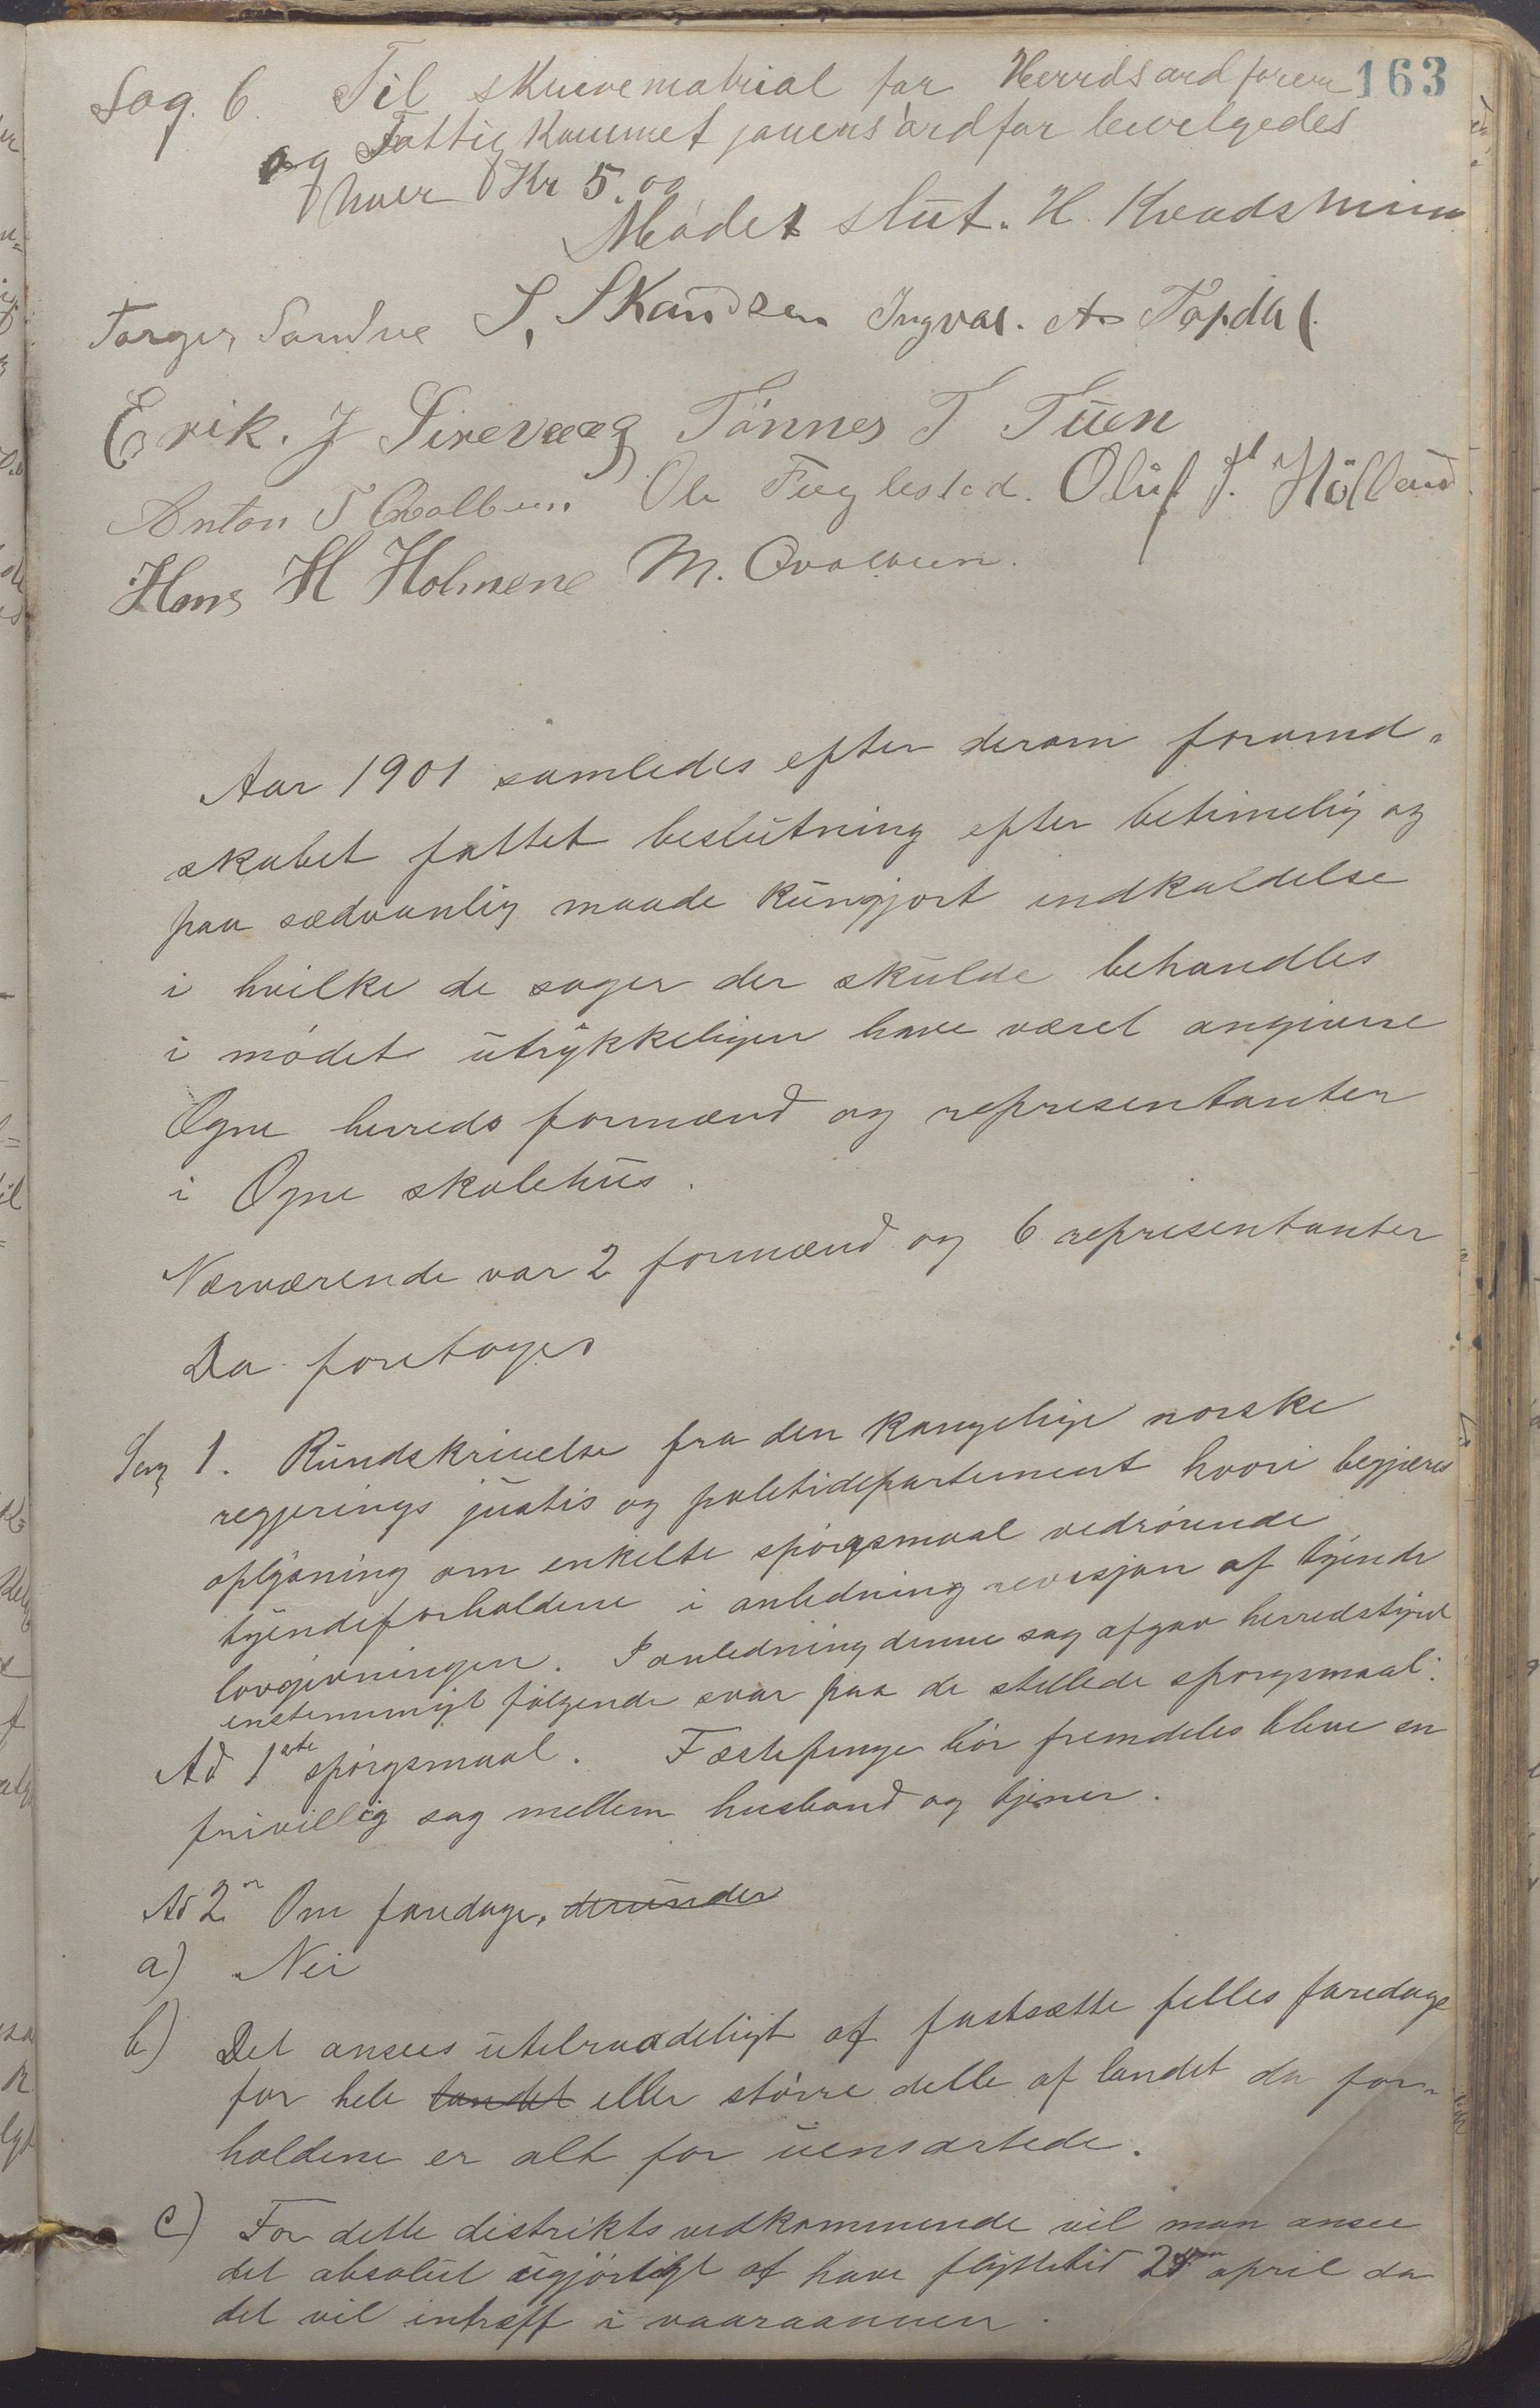 163
Sag. 6. Til skrivematrial for Herrdsordforen
og Fattigkommet jonens ordfør bevelgedes
hver Kr 5.00
Mødet slut. H. Kvadsheim
Torger Sandve S. Skandsen Ingval. A. Topdal.
Erik. J Sirevaag Tönnes T Tuen
Anton T Qvalbein Ole Fuglestad. Oluf J. Hölland
Hans H Holmene M. Qvalbein.
Aar 1901 samledes efter derom formend-
skabet fattet beslutning efter betimelig og
paa sædvanlig maade kungjort indkaldelse
i hvilke de sager der skulde behandles
i mødet utrykkeligen have været angivne
Ogne herreds formænd og representanter
i Ogne skolehus.
Nærværende var 2 formænd og 6 representanter
Da foretoges
Sag 1. Rundskrivelse fra den kongelige norske
regjerings justis og politidepartement hvori begjæres
oplysning om enkelte spørgsmaal vedrørende
tyendeforholdene i anledning revisjon af tyende
lovgivningen. I anledning denne sag afgav herredstyret
enstemmigt følgende svar paa de stillede spørgsmaal:
Ad 1ste spørgsmaal. Fæstepenge bør fremdeles blive en
frivillig sag mellem husbond og tjener.
Ad 2n Om faredage, derunder
a) Nei
b) Det ansees utilraadeligt at fastsætte felles faredage
for hele landet eller større delle af landet da for-
holdene er alt for uensartede.
c) For dette distrikts vedkommende vil man ansee
det absolut ugjørligt at have flyttetid april da
det vil intræff i vaaraannen.